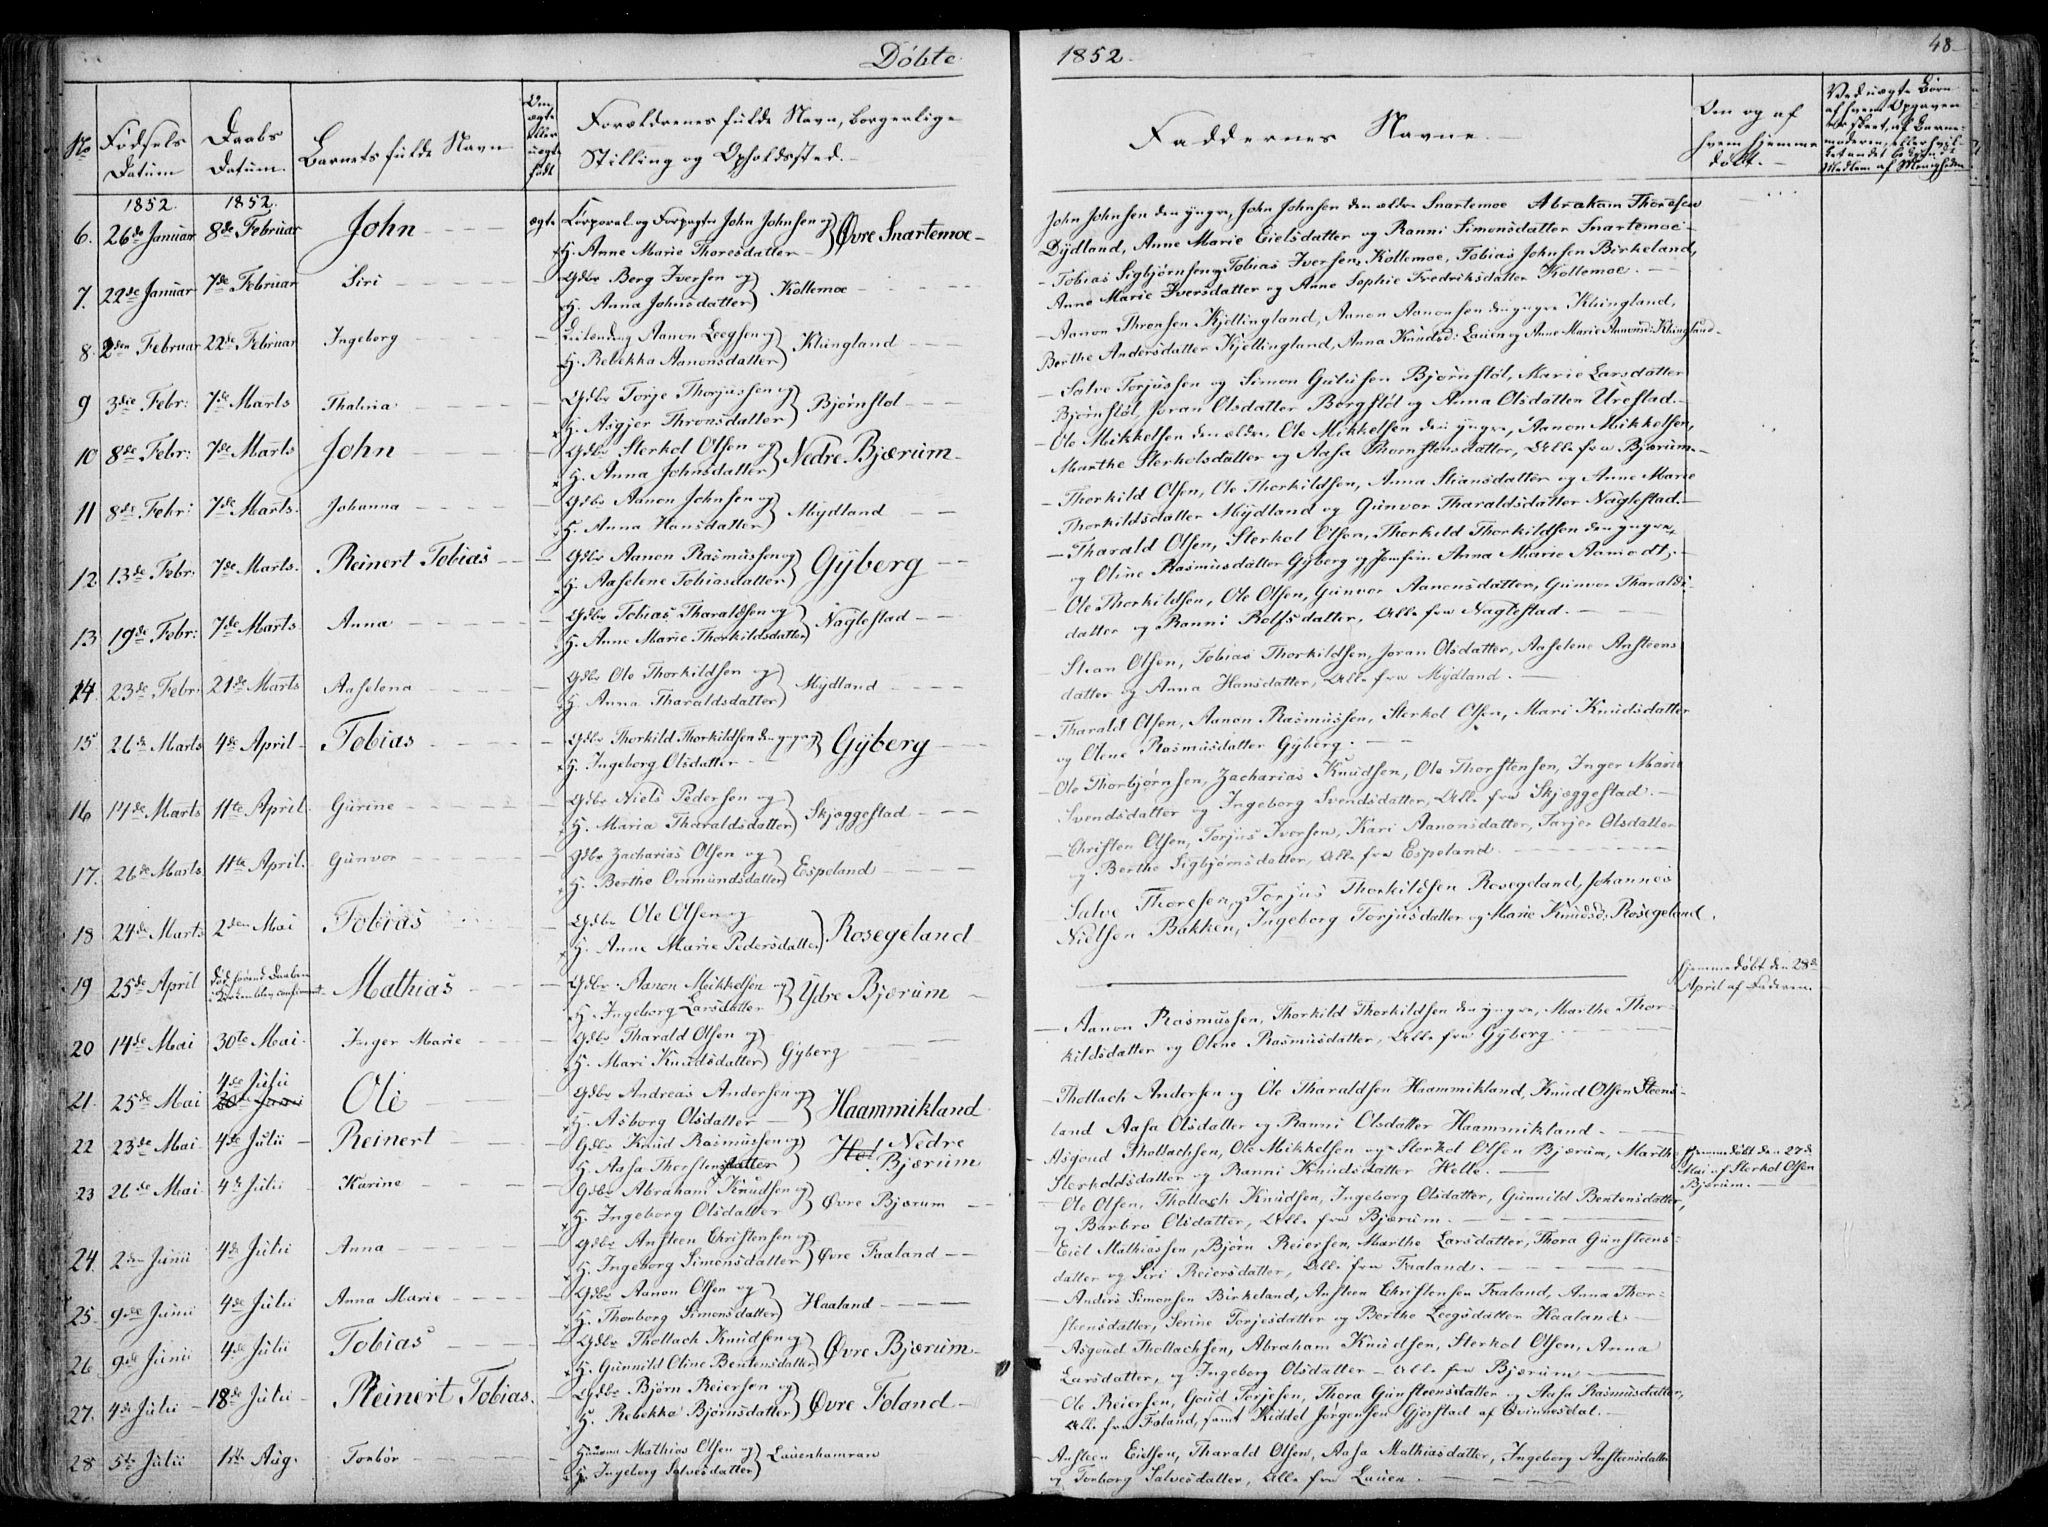 Døbte
1852
48
No
Fødsels Datum
Daabs Datum
Barnets fulde Navn
Om ægte eller uægte født
Forældrenes fulde Navn, borgerlige
Stilling og Opholdssted.
Faddernes Navne.
Om og af hvem hjemme døbt.
1852. 1852.
6. 26de Januar 8de Februar John ægte Corporal og Forpagter John Johnsen og
H. Anne Marie Thoresdatter Øvre Snartemoe
John Johnsen den yngre, John Johnsen den ældre Snartemoe Abraham Thoresen
Dydland, Anne Marie Eielsdatter og Ranni Simonsdatter Snartemoe
7. 22de Januar 7de Februar Siri Gdbr Berg Iversen og
H. Anna Johnsdatter Kollemoe
Tobias Sigbjørnsen, Tobias Iversen, Kollemoe, Tobias Johnsen Birkeland,
Anne Marie Iversdatter og Anne Sophie Fredriksdatter Kollemoe.
8. 2den Februar 22de Februar Ingeborg Aanon Leegsen og
H. Rebekka Aanonsdatter Klungland
Aanon Thronsen Kjellingland, Aanon Aanonsen den yngre Klungland,
Berthe Andersdatter Kjellingland, Anna Knudsd: Lauen og Anne Marie Aanonsd: Klungland
9 3die Febr: 7de Marts Thalena Gdbr Torje Thorjussen og
H. Asgjer Thronsdatter Bjørnstøl
Salve Torjussen og Simon Gutusen Bjørnstøl, Marie Larsdatter
Bjørnstøl, Joran Olsdatter Borgstøl og Anna Olsdatter Urestad.
10 8de Febr: 7de Marts John Gdbr Sterkol Olsen og
H. Anna Johnsdatter Nedre Bjærum
Ole Mikkelsen den ældre, Ole Mikkelsen den yngre, Aanon Mikkelsen,
Marthe Sterkolsdatter og Aasa Thorstensdatter, Alle fra Bjærum.
11 8de Febr: 7de Marts. Johanna Gdbr Aanon Johnsen og
H. Anna Hansdatter Mydland
Thorkild Olsen, Ole Thorkildsen, Anna Stiansdatter og Anne Marie
Thorkildsdatter Mydland og Gunvor Tharaldsdatter Naglestad.
12 13de Febr. 7de Marts. Reinert Tobias Gdbr Aanon Rasmussen og
H. Aaselene Tobiasdatter Gyberg
Tharald Olsen, Sterkol Olsen, Thorkild Thorkildsen den yngre,
og Oline Rasmusdatter Gyberg og Jomfru Anna Marie Aamodt.
13 19de Febr: 7de Marts Anna Gdbr Tobias Tharaldsen og
H. Anne Marie Thorkildsdatter Naglestad
Ole Thorkildsen, Ole Olsen, Gunvor Aanonsdatter, Gunvor Tharalds-
datter og Ranni Rolfsdatter, Alle fra Naglestad.
14. 23de Febr. 21de Marts Aaselena Gdbr Ole Thorkildsen og
H. Anna Tharaldsdatter Mydland
Stian Olsen, Tobias Thorkildsen, Joran Olsdatter, Aaselene Ansteens
datter og Anna Hansdatter, Alle fra Mydland.
15 26de Marts 4de April Tobias Gdbr Thorkild Thorkildsen den yngre og
H. Ingeborg Olsdatter Gyberg
Tharald Olsen, Aanon Rasmussen, Sterkol Olsen, Mari Knudsdatter
og Olene Rasmusdatter Gyberg.
16 14de Marts 11te April. Gurine Gdbr Niels Pedersen og
H. Maria Tharaldsdatter Skjæggestad
Ole Thorbjørnsen, Zacharias Knudsen, Ole Thorstensen, Inger Marie
Svendsdatter og Ingeborg Svendsdatter, Alle fra Skjæggestad.
17. 26de Marts. 11te April. Gunvor Gdbr Zacharias Olsen og
H. Berthe Ommundsdatter Espeland
Christen Olsen, Torjus Iversen, Kari Aanonsdatter, Tarjer Olsdatter
og Berthe Sigbjørnsdatter, Alle fra Espeland.
18 24de Marts 2den Mai Tobias Gdbr Ole Olsen og
H. Anne Marie Pedersdatter Rosegeland
Salve Thoresen, Torjus Thorkildsen Rosegeland, Johannes
Nielsen Bakken, Ingeborg Torjusdatter og Marie Knudsd: Rosegeland.
19 25de April Mathias Gdbr Aanon Mikkelsen og
H. Ingeborg Larsdatter Ydre Bjærum
Hjemmedøbt den 28de
April af Faderen.
20 14de Mai 30te Mai. Inger Marie Gdbr Tharald Olsen og
H. Mari Knudsdatter Gyberg
Aanon Rasmussen, Thorkild Thorkildsen den yngre, Marthe Thor-
kildsdatter og Olene Rasmusdatter, Alle fra Gyberg.
4de Julii
21. 25de Mai Ole Gdbr Andreas Andersen og
H. Asborg Olsdatter Haammikland
Thollach Andersen og Ole Tharaldsen Haammikland, Knud Olsen Steens-
land Aasa Olsdatter og Ranni Olsdatter Haammikland.
22 23de Mai. 4de Julii Reinert Gdbr Knud Rasmussen og
H. Aasa Thorstensdatter Nedre
Bjærum
Asgoud Thollachsen, Ole Mikkelsen og Sterkol Olsen Bjærum, Marthe
Sterkoldsdatter og Ranni Knudsdatter Helle.
Hjemmedøbt den 27de
Mai af Sterkol Olsen
Bjærum.
23 26de Mai. 4de Julii Karine Gdbr Abraham Knudsen og
H. Ingeborg Olsdatter Øvre Bjærum
Ole Olsen, Thollach Knudsen, Ingeborg Olsdatter, Gunnild Bentensdatter,
og Barbro Olsdatter, Alle fra Bjærum.
24. 2den Junii 4de Julii Anna Gdbr Ansteen Christensen og
H. Ingeborg Simonsdatter Øvre Faaland
Eiel Mathiassen, Bjørn Reiersen, Marthe Larsdatter, Thora Gunsteens-
datter og Siri Reiersdatter, Alle fra Faaland.
25. 9de Junii 4de Julii Anna Marie Gdbr Aanon Olsen og
H. Thorborg Simonsdatter Haaland
Anders Simonsen Birkeland, Ansteen Christensen Faaland, Anna Thor-
steensdatter, Serine Torjesdatter og Berthe Leegsdatter Haaland
26 9de Junii 4de Julii Tobias Gdbr Thollach Knudsen og
H. Gunnild Oline Bentensdatter Øvre Bjærum
Asgoud Thollachsen, Abraham Knudsen, Sterkol Olsen, Anna
Larsdatter, og Ingeborg Olsdatter Alle fra Bjærum
27. 4de Julii 18de Julii Reinert Tobias. Gdbr Bjørn Reiersen og
H. Rebekka Bjørnsdatter Øvre Foland
Ole Reiersen, Goud Torjesen, Thora Gunsteensdatter og Aasa Rasmusdatter,
Alle fra Foland, samt Kiddel Jørgensen Gjerstad af Qvinnesdal.
28 5te Julii 1ste Aug. Torbør Mathias Olsen og
H. Ingeborg Salvesdatter Lauenhamran
Ansteen Eielsen, Tharald Olsen, Aasa Mathiasdatter, Ingeborg Ansteensdatter
og Tonborg Salvesdatter, Alle fra Lauen.